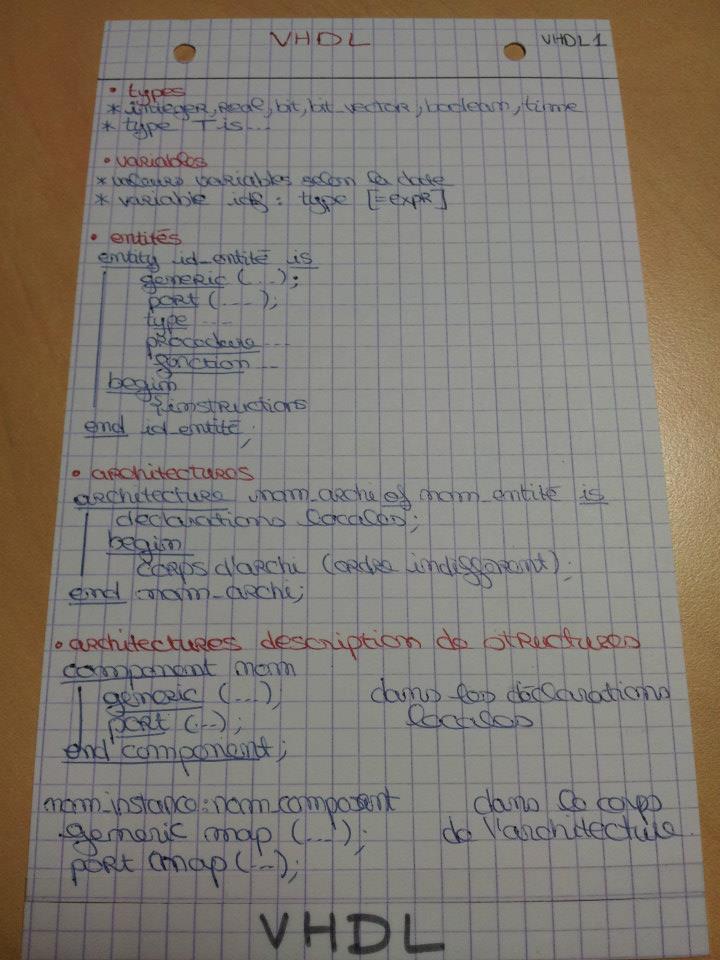 VHDL
VHDL1
• types
* integer, real, bit, bit_vector, boolean, time
* type T is...
• variables
* valeurs variables selon la date
* variable idf : type [=expR]
• entités
entity id_entité is
generic (...);
port (....);
type ....
procedure ...
fonction ...
begin
instructions
end id_entité;
• architectures
architecture nom_archi of nom_entité is
declarations locales;
begin
corps d'archi (ordre indifferent);
end nom_archi;
• architectures description de structures
component nom
generic (...) dans les déclarations
port (...); locales
end component;
nom_instance : nom_component dans le corps
generic map (...); de l'architecture.
port map (...);
VHDL